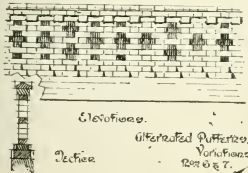 Elevations.
Alternated Patterns,
Variations
Nos 6 & 7.
Section